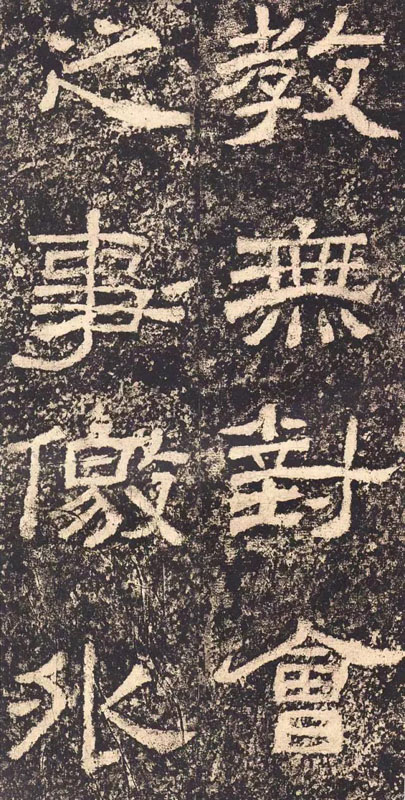 教無對會
之事儌水